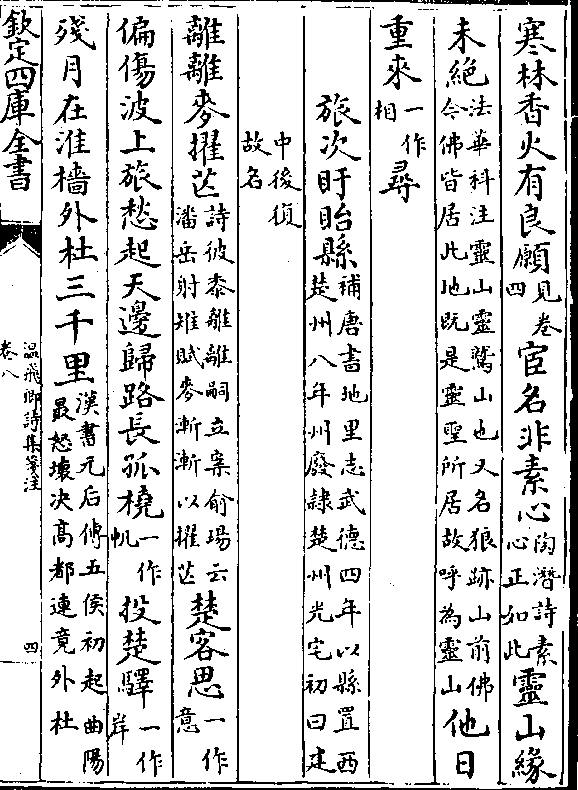 寒林香火有良願見卷四宦名非素心陶潛詩素心正如此靈山緣
未絶法華科注靈山靈鷲山也又名狼跡山前佛今佛皆居此地既是靈聖所居故呼為靈山他日
重來一作相尋
旅次盱眙縣補唐書地里志武德四年以縣置西楚州八年州廢隷楚州光宅初曰建
中後復故名
離離麥擢芒詩彼黍離離嗣立案俞瑒云潘岳射雉賦麥漸漸以擢芒楚客思一作意
偏傷波上旅愁起天邊歸路長孤橈一作帆投楚驛一作岸
殘月在淮檣外杜三千里漢書元后傳五侯初起曲陽最怒壞決高都連竟外杜
欽定四庫全書
溫飛卿詩集箋注
卷八
四